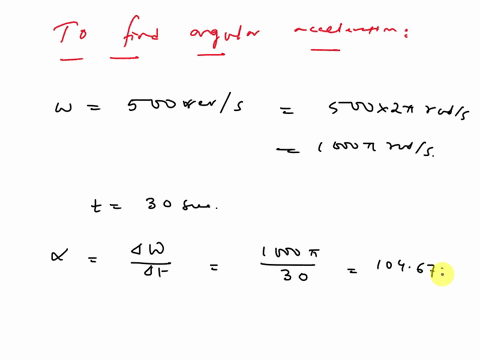 To find angular acceleration:
ω = 500 rev/s = 500×2π rad/s
= 1000π rad/s.
t = 30 sec.
α = Δω/Δt = 1000π/30 = 104.67: